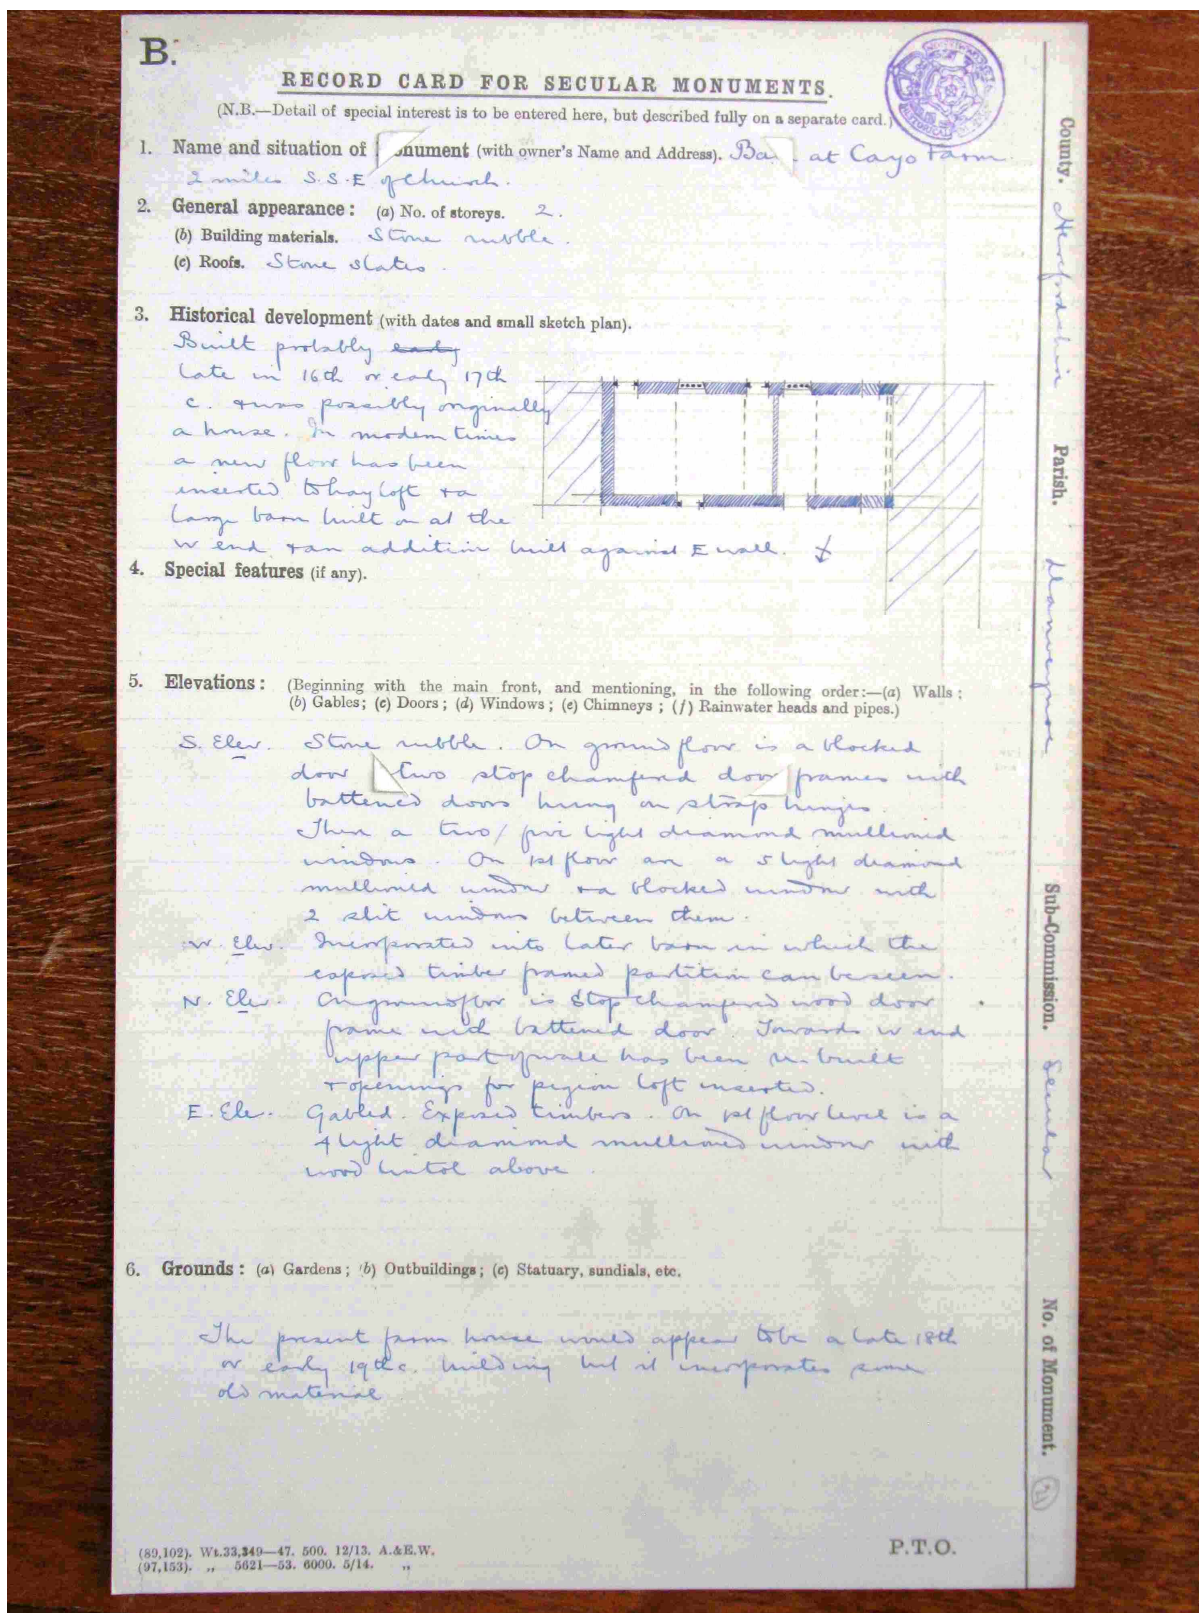 B.
RECORD CARD FOR SECULAR MONUMENTS.
(N.B.—Detail of special interest is to be entered here, but described fully on a separate card.)
1. Name and situation of onument (with owner's Name and Address). Ba at Cayo Farm.
2 miles S.S.E of Church.
2. General appearance: (a) No. of storeys. 2.
(b) Building materials. Stone rubble.
(c) Roofs. Stone slates.
3. Historical development (with dates and small sketch plan).
Built probably early
late in 16th or early 17th
c. & was possibly originally
a house. In modern times
a new floor has been
inserted to hay loft & a
large barn built on at the
W end & an addition built against E wall.
4. Special features (if any).
5. Elevations: (Beginning with the main front, and mentioning, in the following order:—(a) Walls;
(b) Gables; (c) Doors; (d) Windows; (e) Chimneys; (f) Rainwater heads and pipes.)
S. Elev. Stone rubble. On ground floor is a blocked
door two stop chamfered door frames with
battened doors hung on strap hinges.
Then a two/five light diamond mullioned
windows. On 1st floor are a 5 light diamond
mullioned window & a blocked window with
2 slit windows between them.
W. Elev. Incorporated into later barn in which the
exposed timber framed partition can be seen.
N. Elev. On ground floor is stop chamfered wood door
frame with battened door. Towards W end
upper part of wall has been re-built
& openings for pigeon loft inserted.
E. Ele. Gabled. Exposed timbers. On 1st floor level is a
4 light diamond mullioned window with
wood lintol above.
6. Grounds: (a) Gardens; (b) Outbuildings; (c) Statuary, sundials, etc.
The present farm house would appear to be a late 18th
or early 19th c. building but it incorporates some
old material
(89,102). Wt.33,349—47. 500. 12/13. A.&E.W.
(97,153). „ 5621—53. 6000. 5/14. „
P.T.O.
County. Herefordshire
Parish. Llanveynoe
Sub-Commission. Secular
No. of Monument.